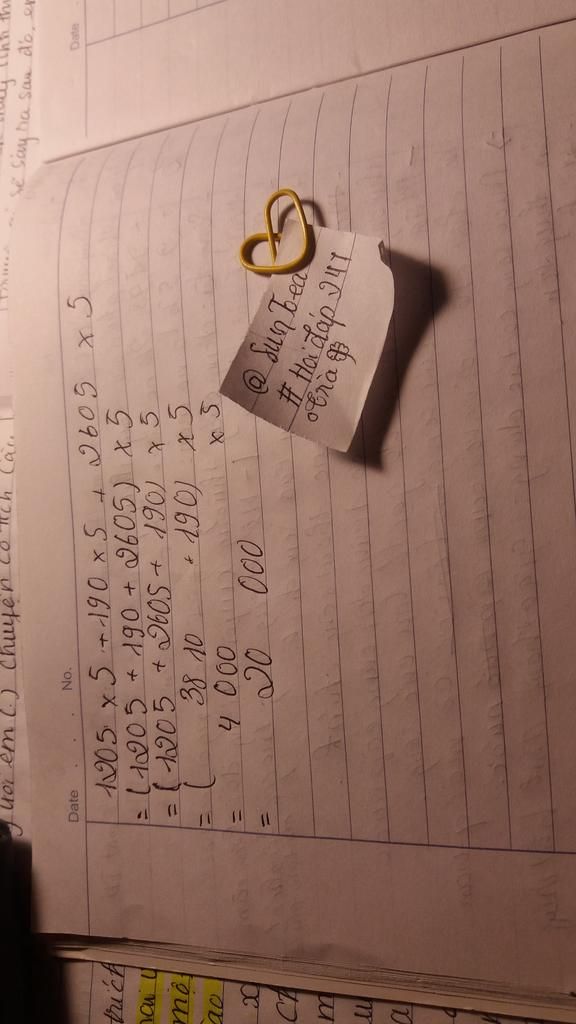 Date No.
1205 x 5 + 190 x 5 + 2605 x 5
= (1205 + 190 + 2605) x 5
= (1205 + 2605 + 190) x 5
= ( 3810 + 190) x 5
= 4 000 x 5
= 20 000
@ Sun Tea
# Hoi đáp 247
Trà
Date
chuyện cổ tích
trích